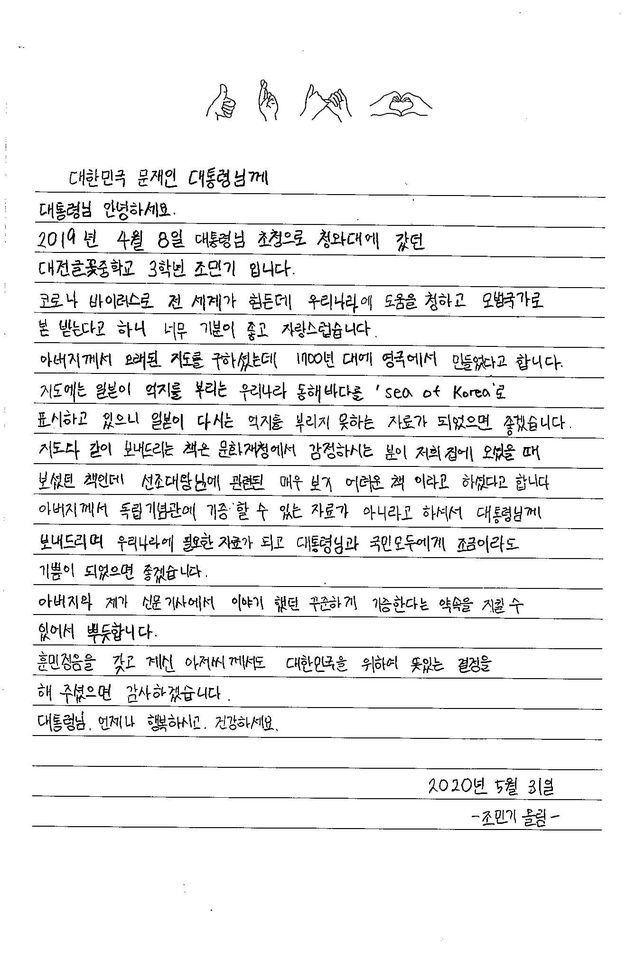 대한민국 문재인 대통령님께
대통령님 안녕하세요.
2019년 4월 8일 대통령님 초청으로 청와대에 갔던
대전글꽃중학교 3학년 조민기 입니다.
코로나 바이러스로 전 세계가 힘든데 우리나라에 도움을 청하고 모범국가로
본 받는다고 하니 너무 기분이 좋고 자랑스럽습니다.
아버지께서 오래된 지도를 구하셨는데 1700년 대에 영국에서 만들었다고 합니다.
지도에는 일본이 억지를 부리는 우리나라 동해바다를 'sea of Korea'로
표시하고 있으니 일본이 다시는 억지를 부리지 못하는 자료가 되었으면 좋겠습니다.
지도와 같이 보내드리는 책은 문화재청에서 감정하시는 분이 저희 집에 오셨을 때
보셨던 책인데 선조대왕님에 관련된 매우 보기 어려운 책 이라고 하셨다고 합니다
아버지께서 독립기념관에 기증 할 수 있는 자료가 아니라고 하셔서 대통령님께
보내드리며 우리나라에 필요한 자료가 되고 대통령님과 국민모두에게 조금이라도
기쁨이 되었으면 좋겠습니다.
아버지와 제가 신문기사에서 이야기 했던 꾸준하게 기증한다는 약속을 지킬 수
있어서 뿌듯합니다.
훈민정음을 갖고 계신 아저씨께서도 대한민국을 위하여 뜻있는 결정을
해 주셨으면 감사하겠습니다.
대통령님. 언제나 행복하시고. 건강하세요.
2020년 5월 31일
-조민기 올림-